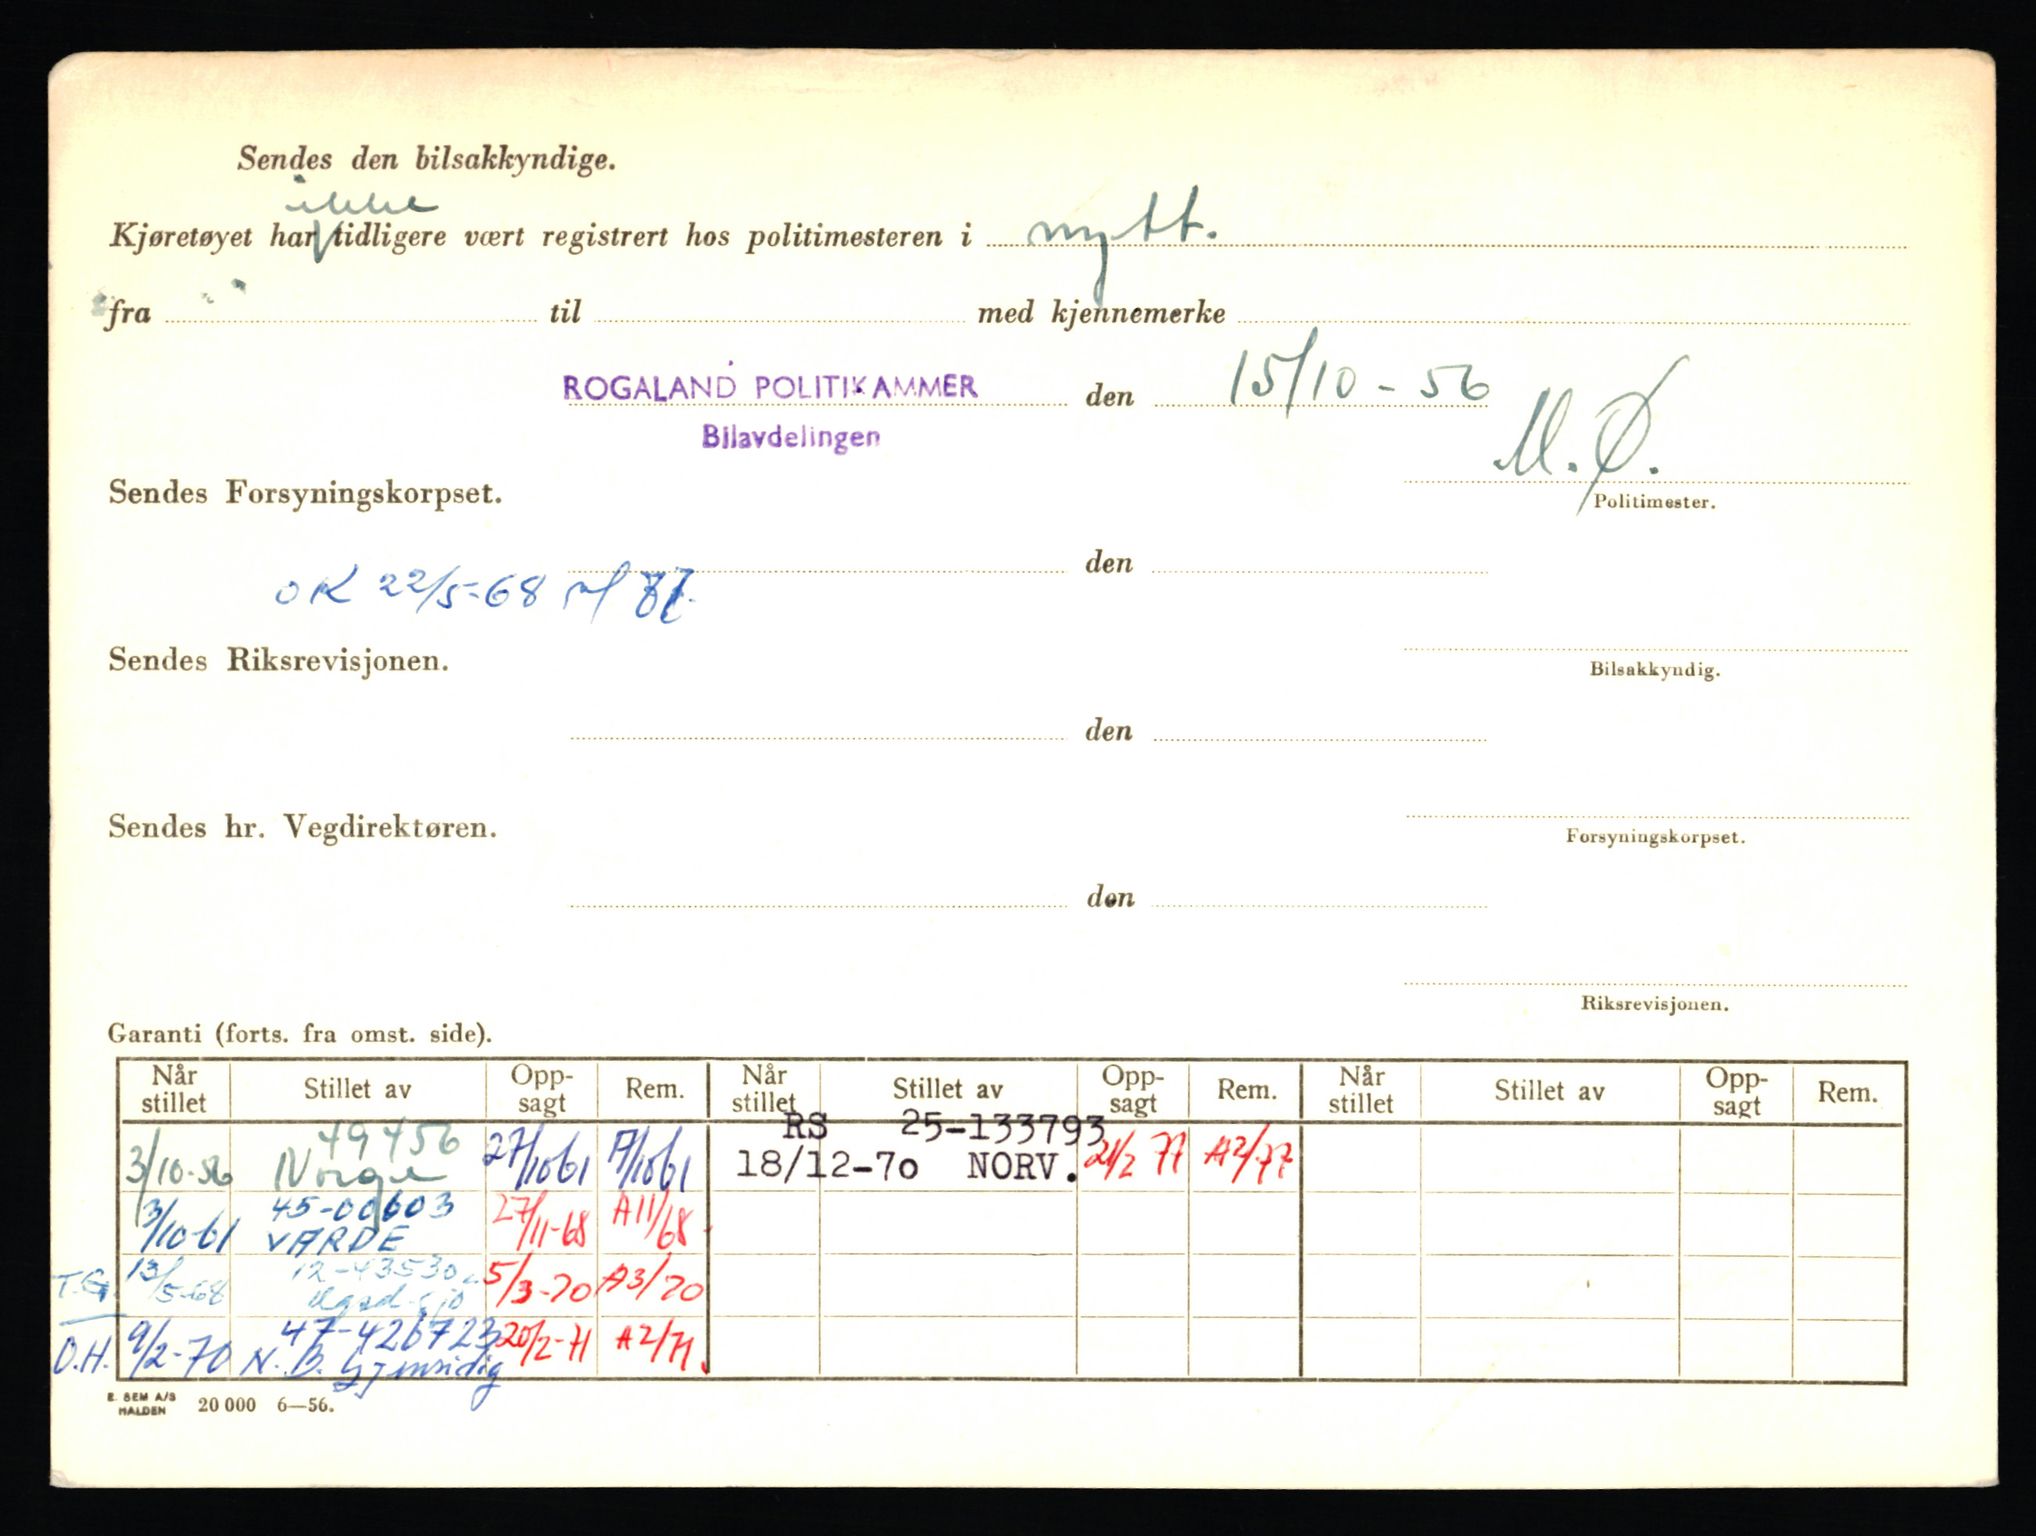 Sendes den bilsakkyndige.
ikke
Kjøretøyet har tidligere vært registrert hos politimesteren i nytt.
fra til med kjennemerke
ROGALAND POLITIKAMMER den 15/10 - 56
Bilavdelingen
M.Ø.
Sendes Forsyningskorpset. Politimester.
den
OK 22/5-68
Sendes Riksrevisjonen. Bilsakkyndig.
den
Sendes hr. Vegdirektøren. Forsyningskorpset.
den
Riksrevisjonen.
Garanti (forts. fra omst. side).
Når stillet Stillet av Opp-sagt Rem. Når stillet Stillet av Opp-sagt Rem. Når stillet Stillet av Opp-sagt Rem.
49456 RS 25-133793
3/10-56 Norge 27/1061 A/1061 18/12-70 NORV. 21/2 77 A2/77
45-00603
3/10-61 VARDE 27/11-68 A11/68
T.G. 13/5-68 12-43530 5/3-70 A3/70
47-426723
O.H. 9/2-70 N. B. Gjensidig 20/2-71 A2/71.
E. SEM A/S
HALDEN 20 000 6—56.